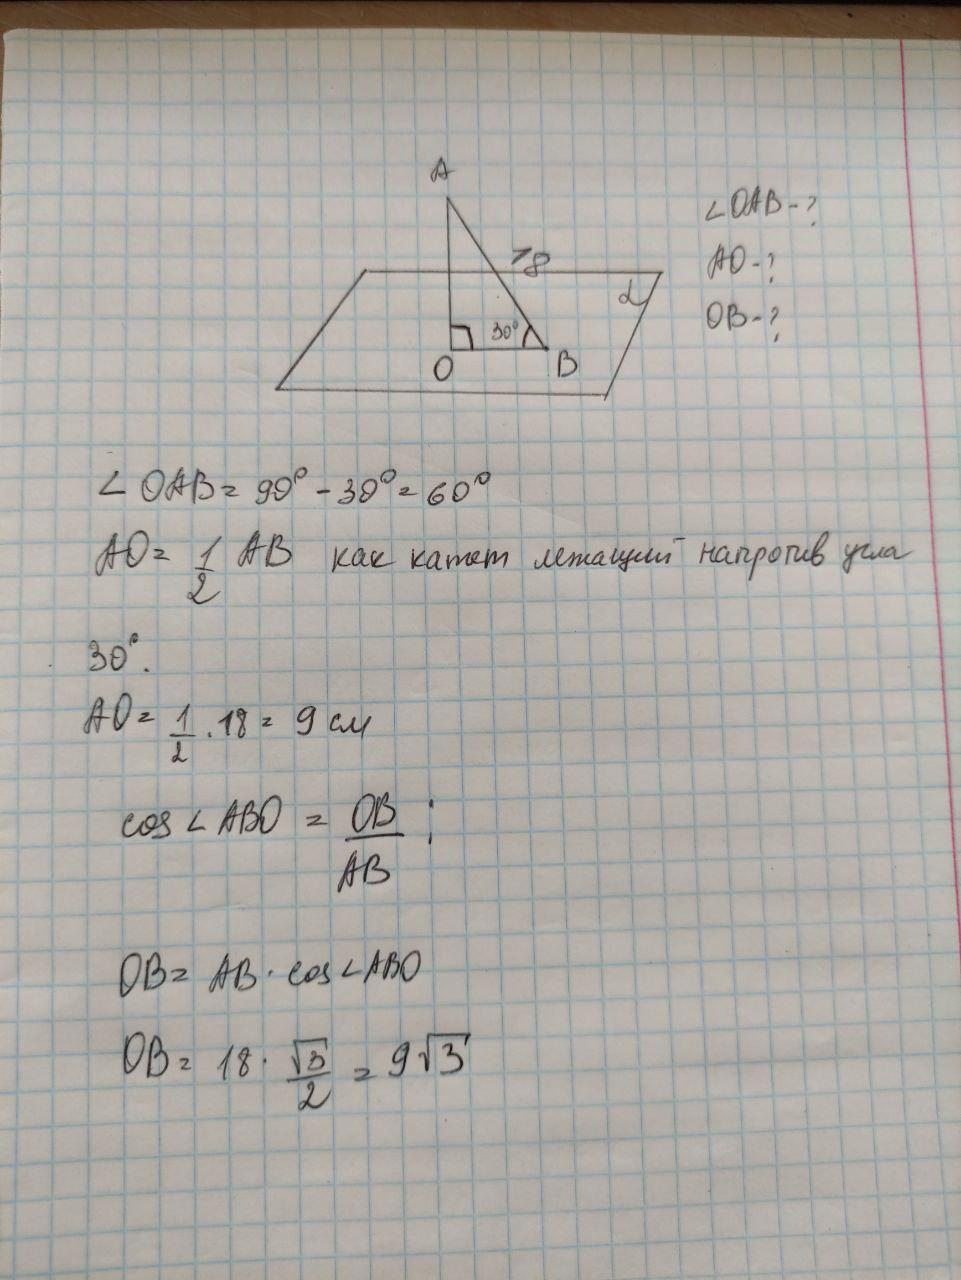 A
∠OAB-?
18
AO-?
α
OB-?
30°
O
B
∠OAB = 90° - 30° = 60°
AO = 1/2 AB как катет лежащий напротив угла
30°.
AO = 1/2 · 18 = 9 см
cos∠ABO = OB/AB;
OB = AB · cos∠ABO
OB = 18 · √3/2 = 9√3